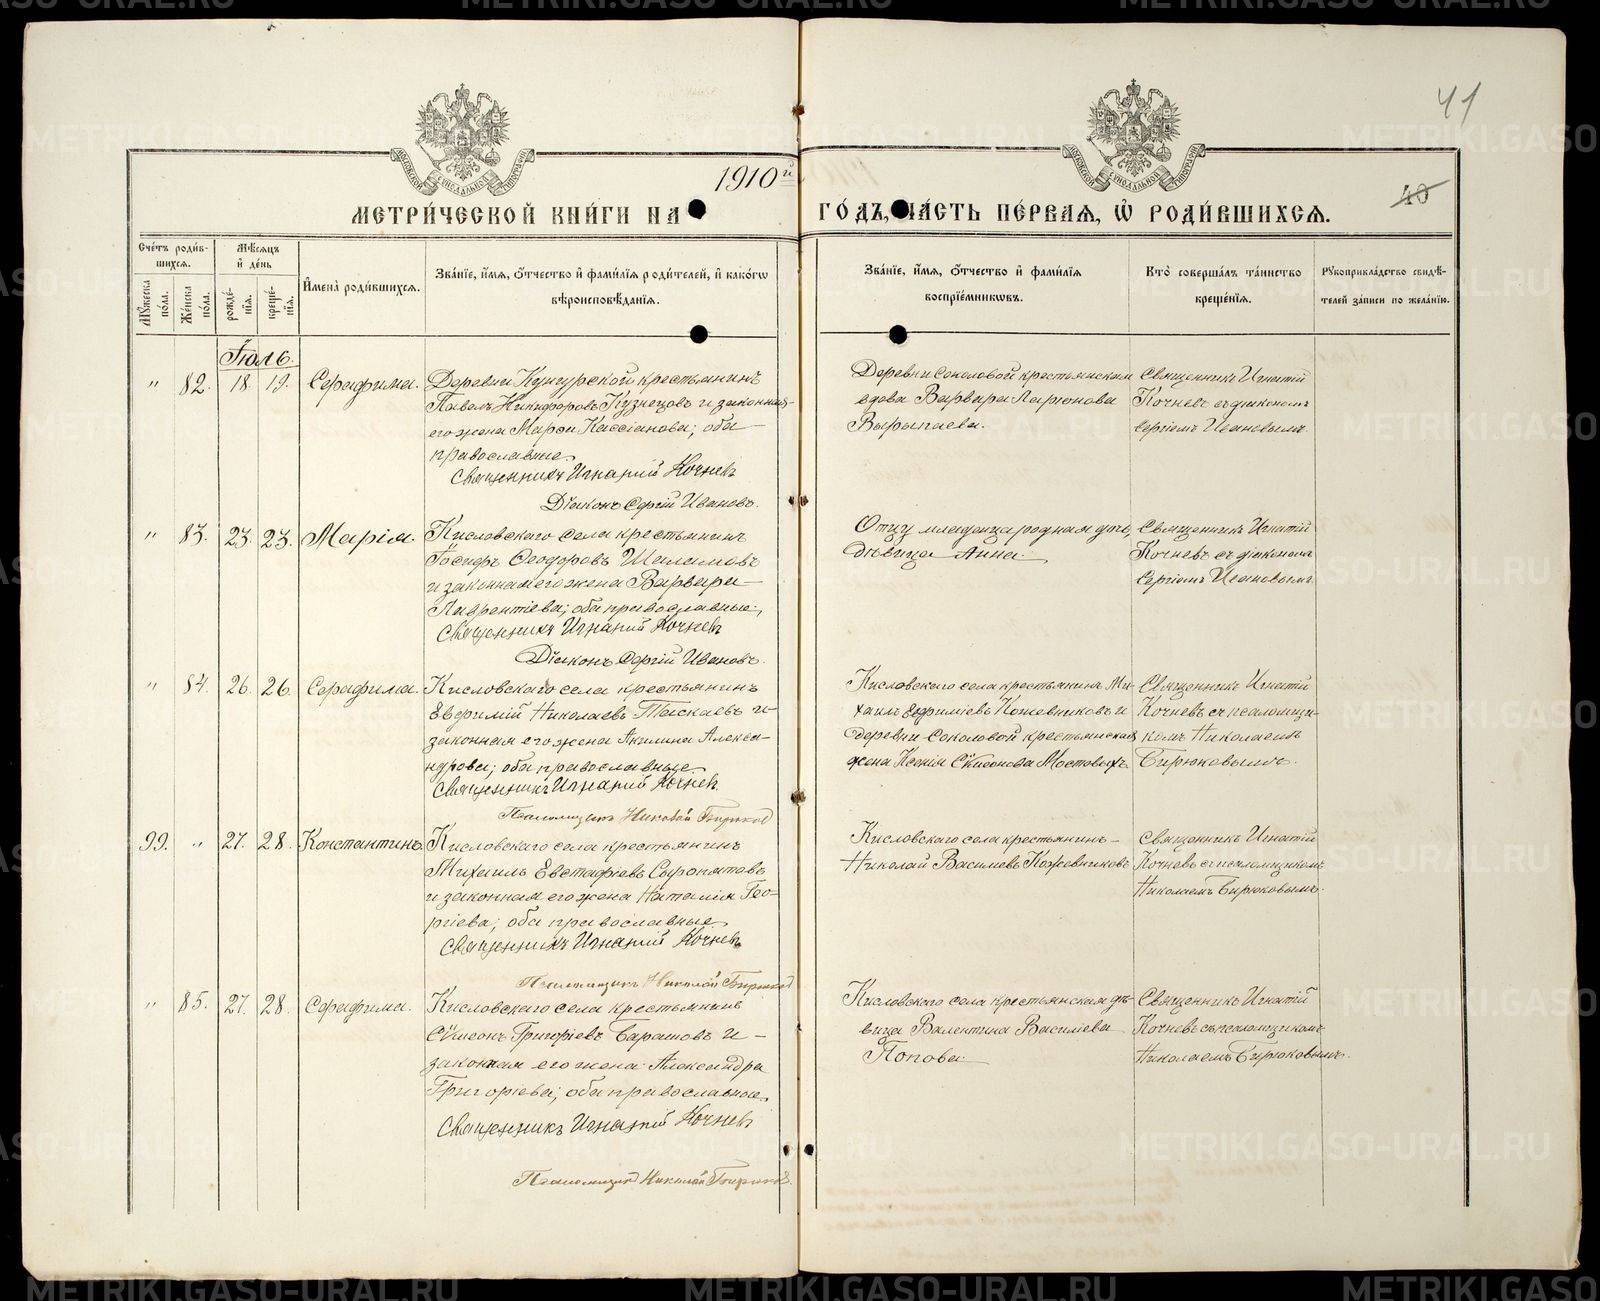 41
40
1910й
МЕТРИ́ЧЕСКОЙ КНИ́ГИ НА
ГО́ДЪ, ЧА́СТЬ ПЕ́РВАЯ, Ѡ҆ РОДИ́ВШИХСЯ.
Сче́тъ роди́в-
шихся.
Мꙋ́жеска по́ла.
Же́нска по́ла.
Мѣ́сяцъ и҆ де́нь
рожде́-
нїя.
креще́-
нїя.
И҆мена̀ роди́вшихся.
Зва́нїе, и҆́мя, ѻ҆́тчество и҆ фами́лїя роди́телей, и҆ како́гѡ
вѣроисповѣ́данїя.
Зва́нїе, и҆́мя, ѻ҆́тчество и҆ фами́лїя
воспрїе́мникѡвъ.
Кто̀ соверша́лъ та́инство
креще́нїя.
Рꙋкоприкла́дство свидѣ́-
телей за́писи по жела́нїю.
Іюль.
" 82. 18. 19. Серафима.
Деревни Кунгурской крестьянинъ
Павелъ Никифоровъ Кузнецовъ и законная
его жена Марѳа Кассіанова; оба
православные.
Священникъ Игнатій Кочневъ
Діаконъ Сергій Ивановъ.
Деревни Соколовой крестьянская
вдова Варвара Ларіонова
Вырыпаева.
Священникъ Игнатій
Кочневъ съ діакономъ
Сергіемъ Ивановымъ.
" 83. 23. 23. Марія.
Кисловскаго села крестьянинъ
Іосифъ Ѳеодоровъ Шаламовъ
и законная его жена Варвара
Лаврентіева; оба православные.
Священникъ Игнатій Кочневъ
Діаконъ Сергій Ивановъ.
Отцу младенца родная дочь,
дѣвица Анна.
Священникъ Игнатій
Кочневъ съ діакономъ
Сергіемъ Ивановымъ
" 84. 26. 26. Серафима.
Кисловскаго села крестьянинъ
Евфимій Николаевъ Таскаевъ и
законная его жена Акилина Алексан-
дрова; оба православные
Священникъ Игнатій Кочневъ
Псаломщикъ Николай Бирюков
Кисловскаго села крестьянинъ Ми-
хаилъ Евфиміевъ Кожевниковъ и
деревни Соколовой крестьянская
жена Ксенія Сѵмеонова Мостовыхъ.
Священникъ Игнатій
Кочневъ съ псаломщи-
комъ Николаемъ
Бирюковымъ.
99. " 27. 28. Константинъ.
Кисловскаго села крестьянинъ
Михаилъ Евстафіевъ Сыропятовъ
и законная его жена Наталія Геор-
гіева; оба православные
Священникъ Игнатій Кочневъ
Псаломщикъ Николай Бирюков
Кисловскаго села крестьянинъ
Николай Василіевъ Кожевниковъ
Священникъ Игнатій
Кочневъ съ псаломщикомъ
Николаемъ Бирюковымъ.
" 85. 27. 28. Серафима.
Кисловскаго села крестьянинъ
Сѵмеонъ Григоріевъ Барашовъ и
законная его жена Александра
Григоріева; оба православные.
Священникъ Игнатій Кочневъ
Псаломщик Николай Бирюков.
Кисловскаго села крестьянская дѣ-
вица Валентина Василіева
Попова.
Священникъ Игнатій
Кочневъ съ псаломщикомъ
Николаемъ Бирюковымъ.
METRIKI.GASO-URAL.RU